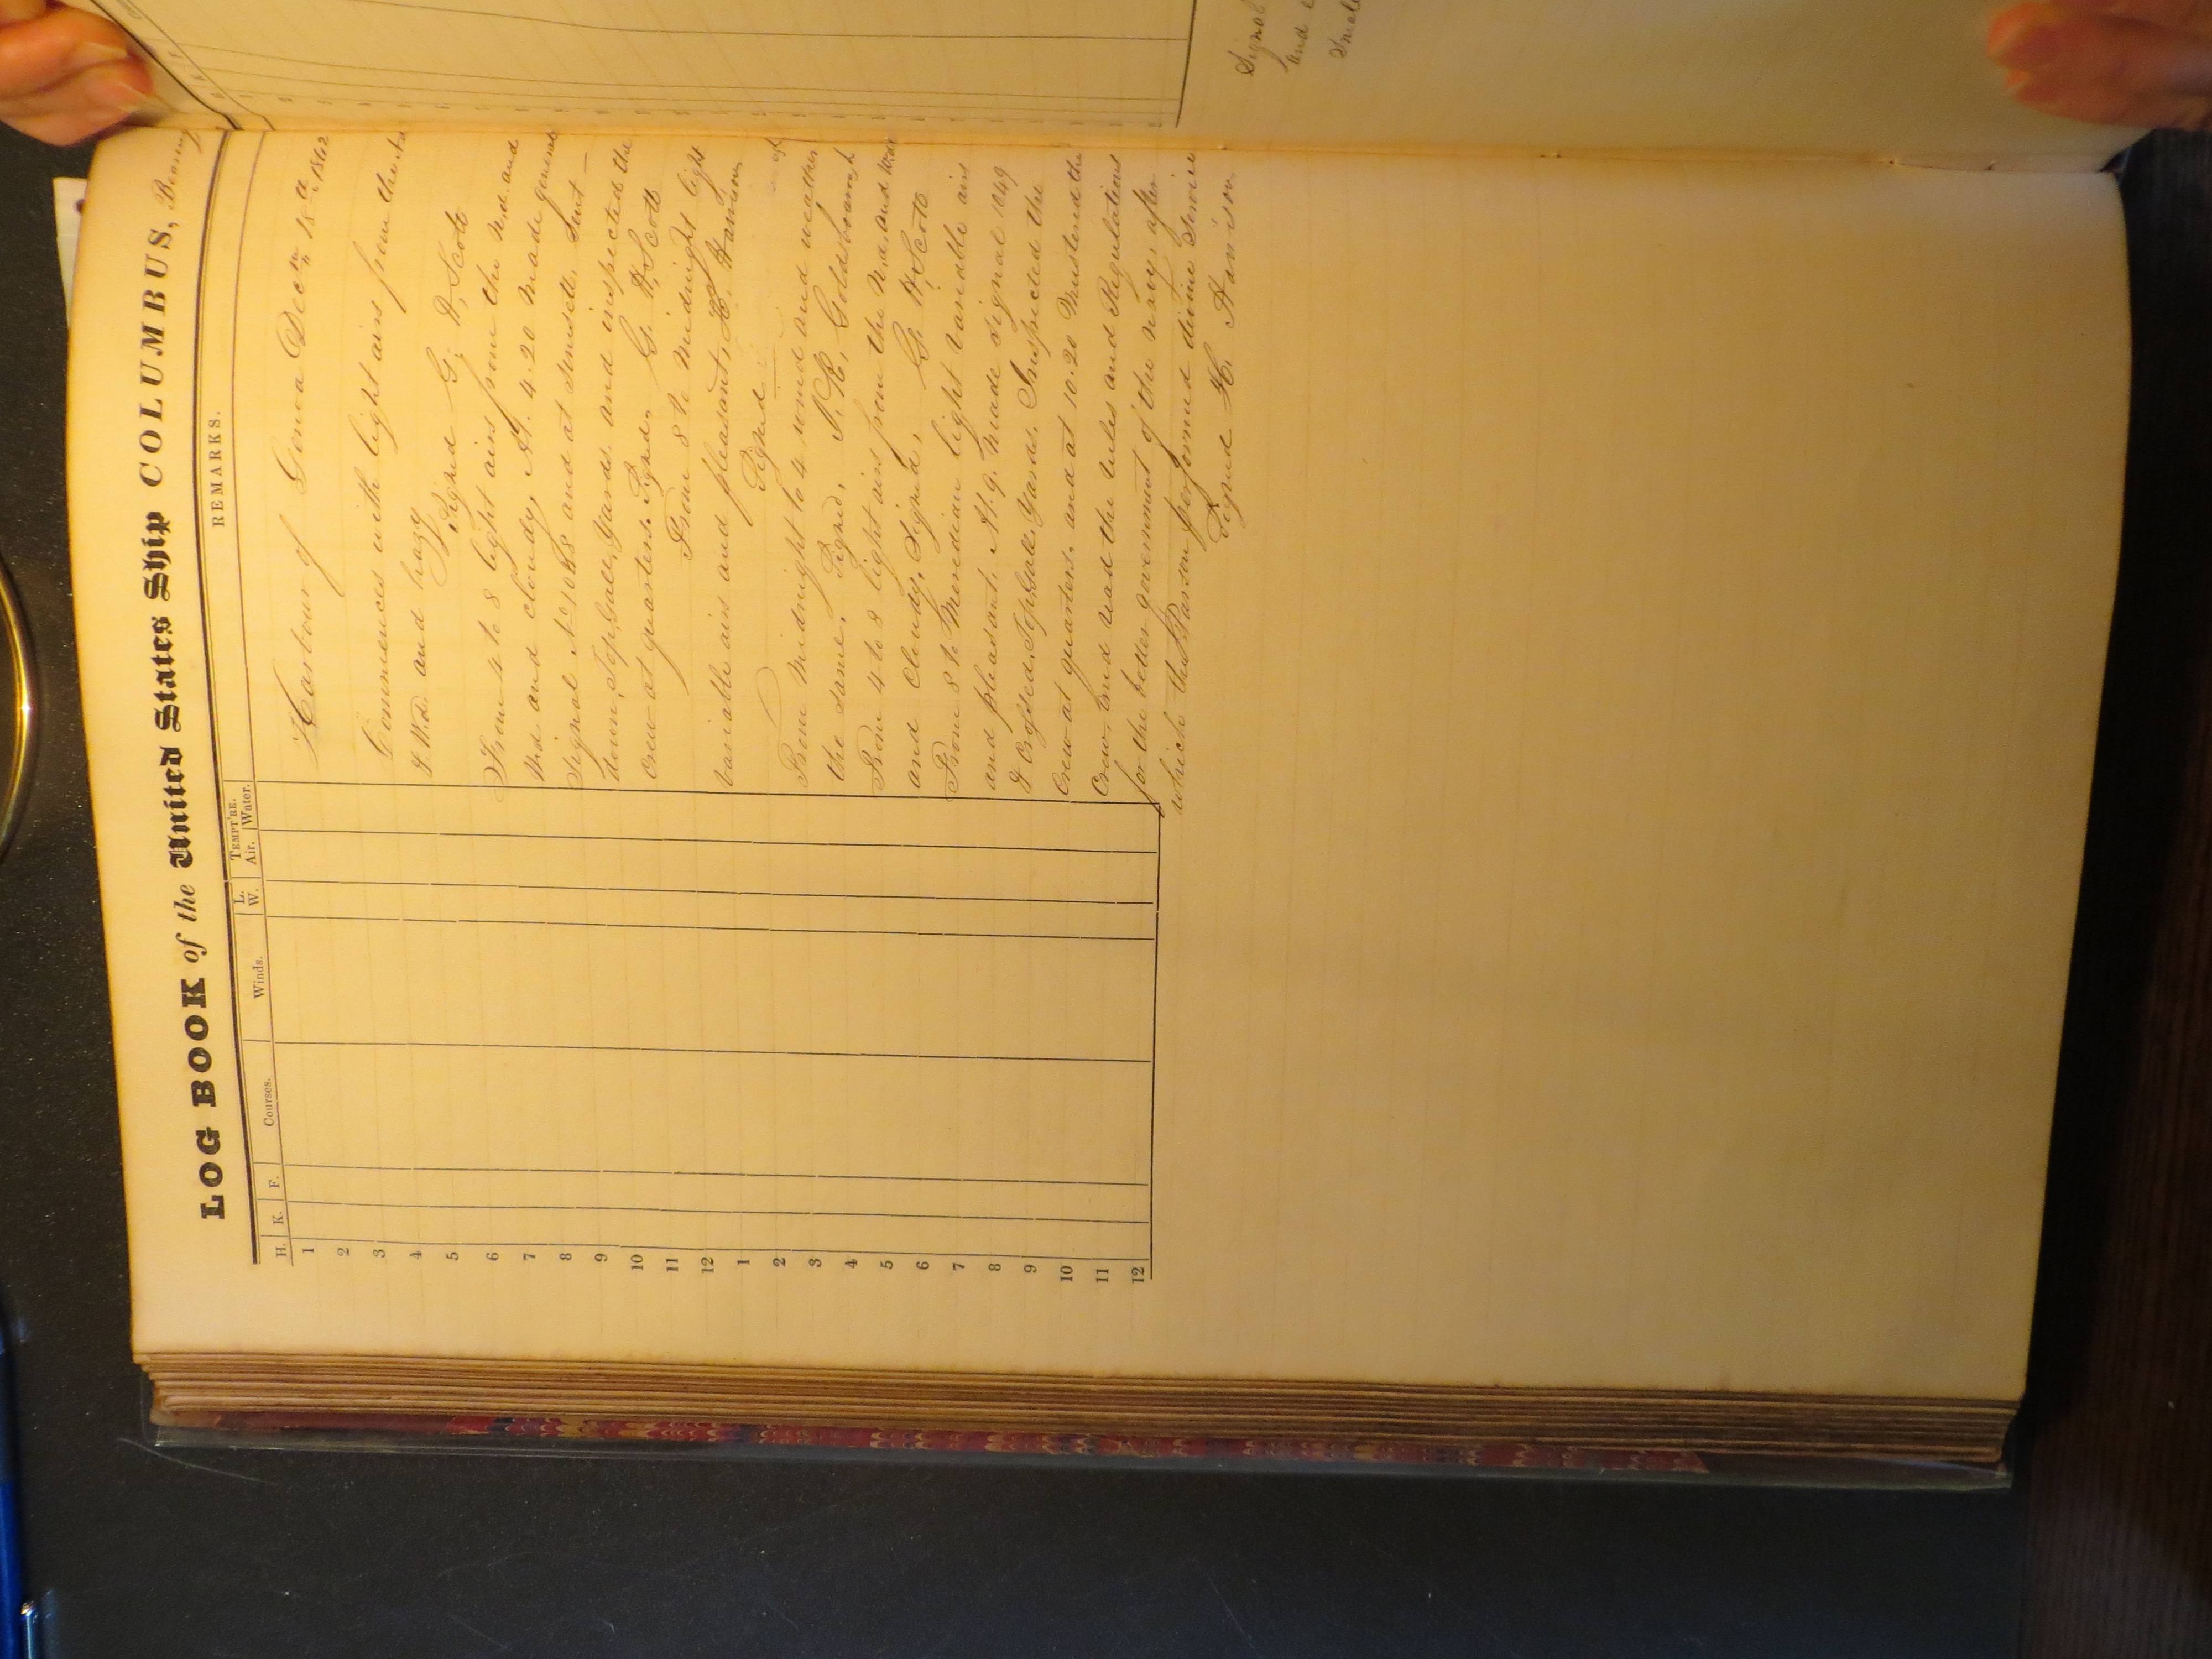 LOG BOOK of the United States Ship COLUMBUS, Bearing
H. K. F. Courses. Winds. L. W. TEMPT'RE. Air. Water. REMARKS.
1
2
3
4
5
6
7
8
9
10
11
12
1
2
3
4
5
6
7
8
9
10
11
12
Harbour of Genoa Decem 18th 1842
Commences with light airs from the
& Wd. and hazy
Signed G. H. Scott
From 4 to 8 light airs from the Nd. and
Wd and cloudy At. 4.20 made general
Signal No 1068 and at Sunset. Sent
down, Top, Gall, Yards. and inspected the
Crew at quarters. Signed. G. H. Scott
From 8 to Midnight light
variable airs and pleasant.
Signed H. Harrison
From Midnight to 4 wind and weather
the same. Signed, J. R. Goldsborough
From 4 to 8 light airs from the Nd, and Wd
and Cloudy. Signed, G. H. Scott
From 8 to Meredian light variable airs
and pleasant. At. 9. made signal 1049
& Crossed, Top, Gall, Yards. Inspected the
Crew at quarters. and at 10.20 Mustered the
Crew, and read the rules and Regulations
for the better government of the navy, after
which the Parson performed divine Service
Signed H. Harrison
Signal
and